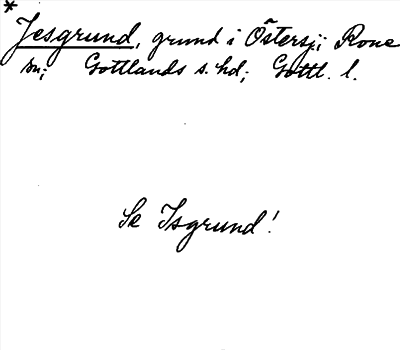 *
Jesgrund, grund i Östersj; i Rone
sn; Gottlands s. hd; Gottl. l.
Se Isgrund!